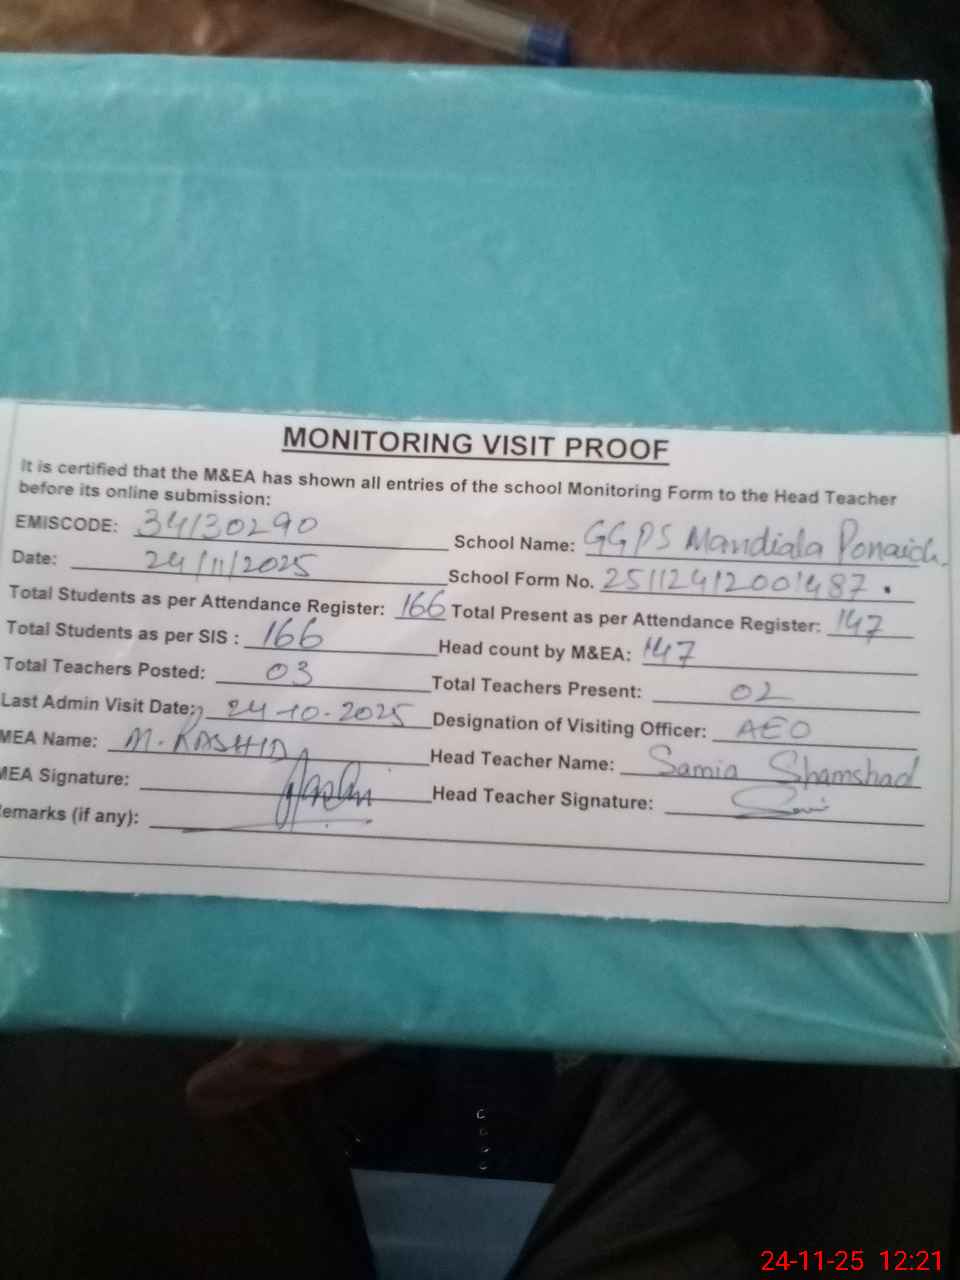 MONITORING VISIT PROOF
It is certified that the M&EA has shown all entries of the school Monitoring Form to the Head Teacher
before its online submission:
EMISCODE: 34130290 School Name: GGPS Mandiala Ponaich
Date: 24/11/2025 School Form No. 25112412001487
Total Students as per Attendance Register: 166 Total Present as per Attendance Register: 147
Total Students as per SIS : 166 Head count by M&EA: 147
Total Teachers Posted: 03 Total Teachers Present: 02
Last Admin Visit Date: 24-10-2025 Designation of Visiting Officer: AEO
MEA Name: M. RASHID Head Teacher Name: Samia Shamshad
MEA Signature: Head Teacher Signature:
emarks (if any):
24-11-25 12:21